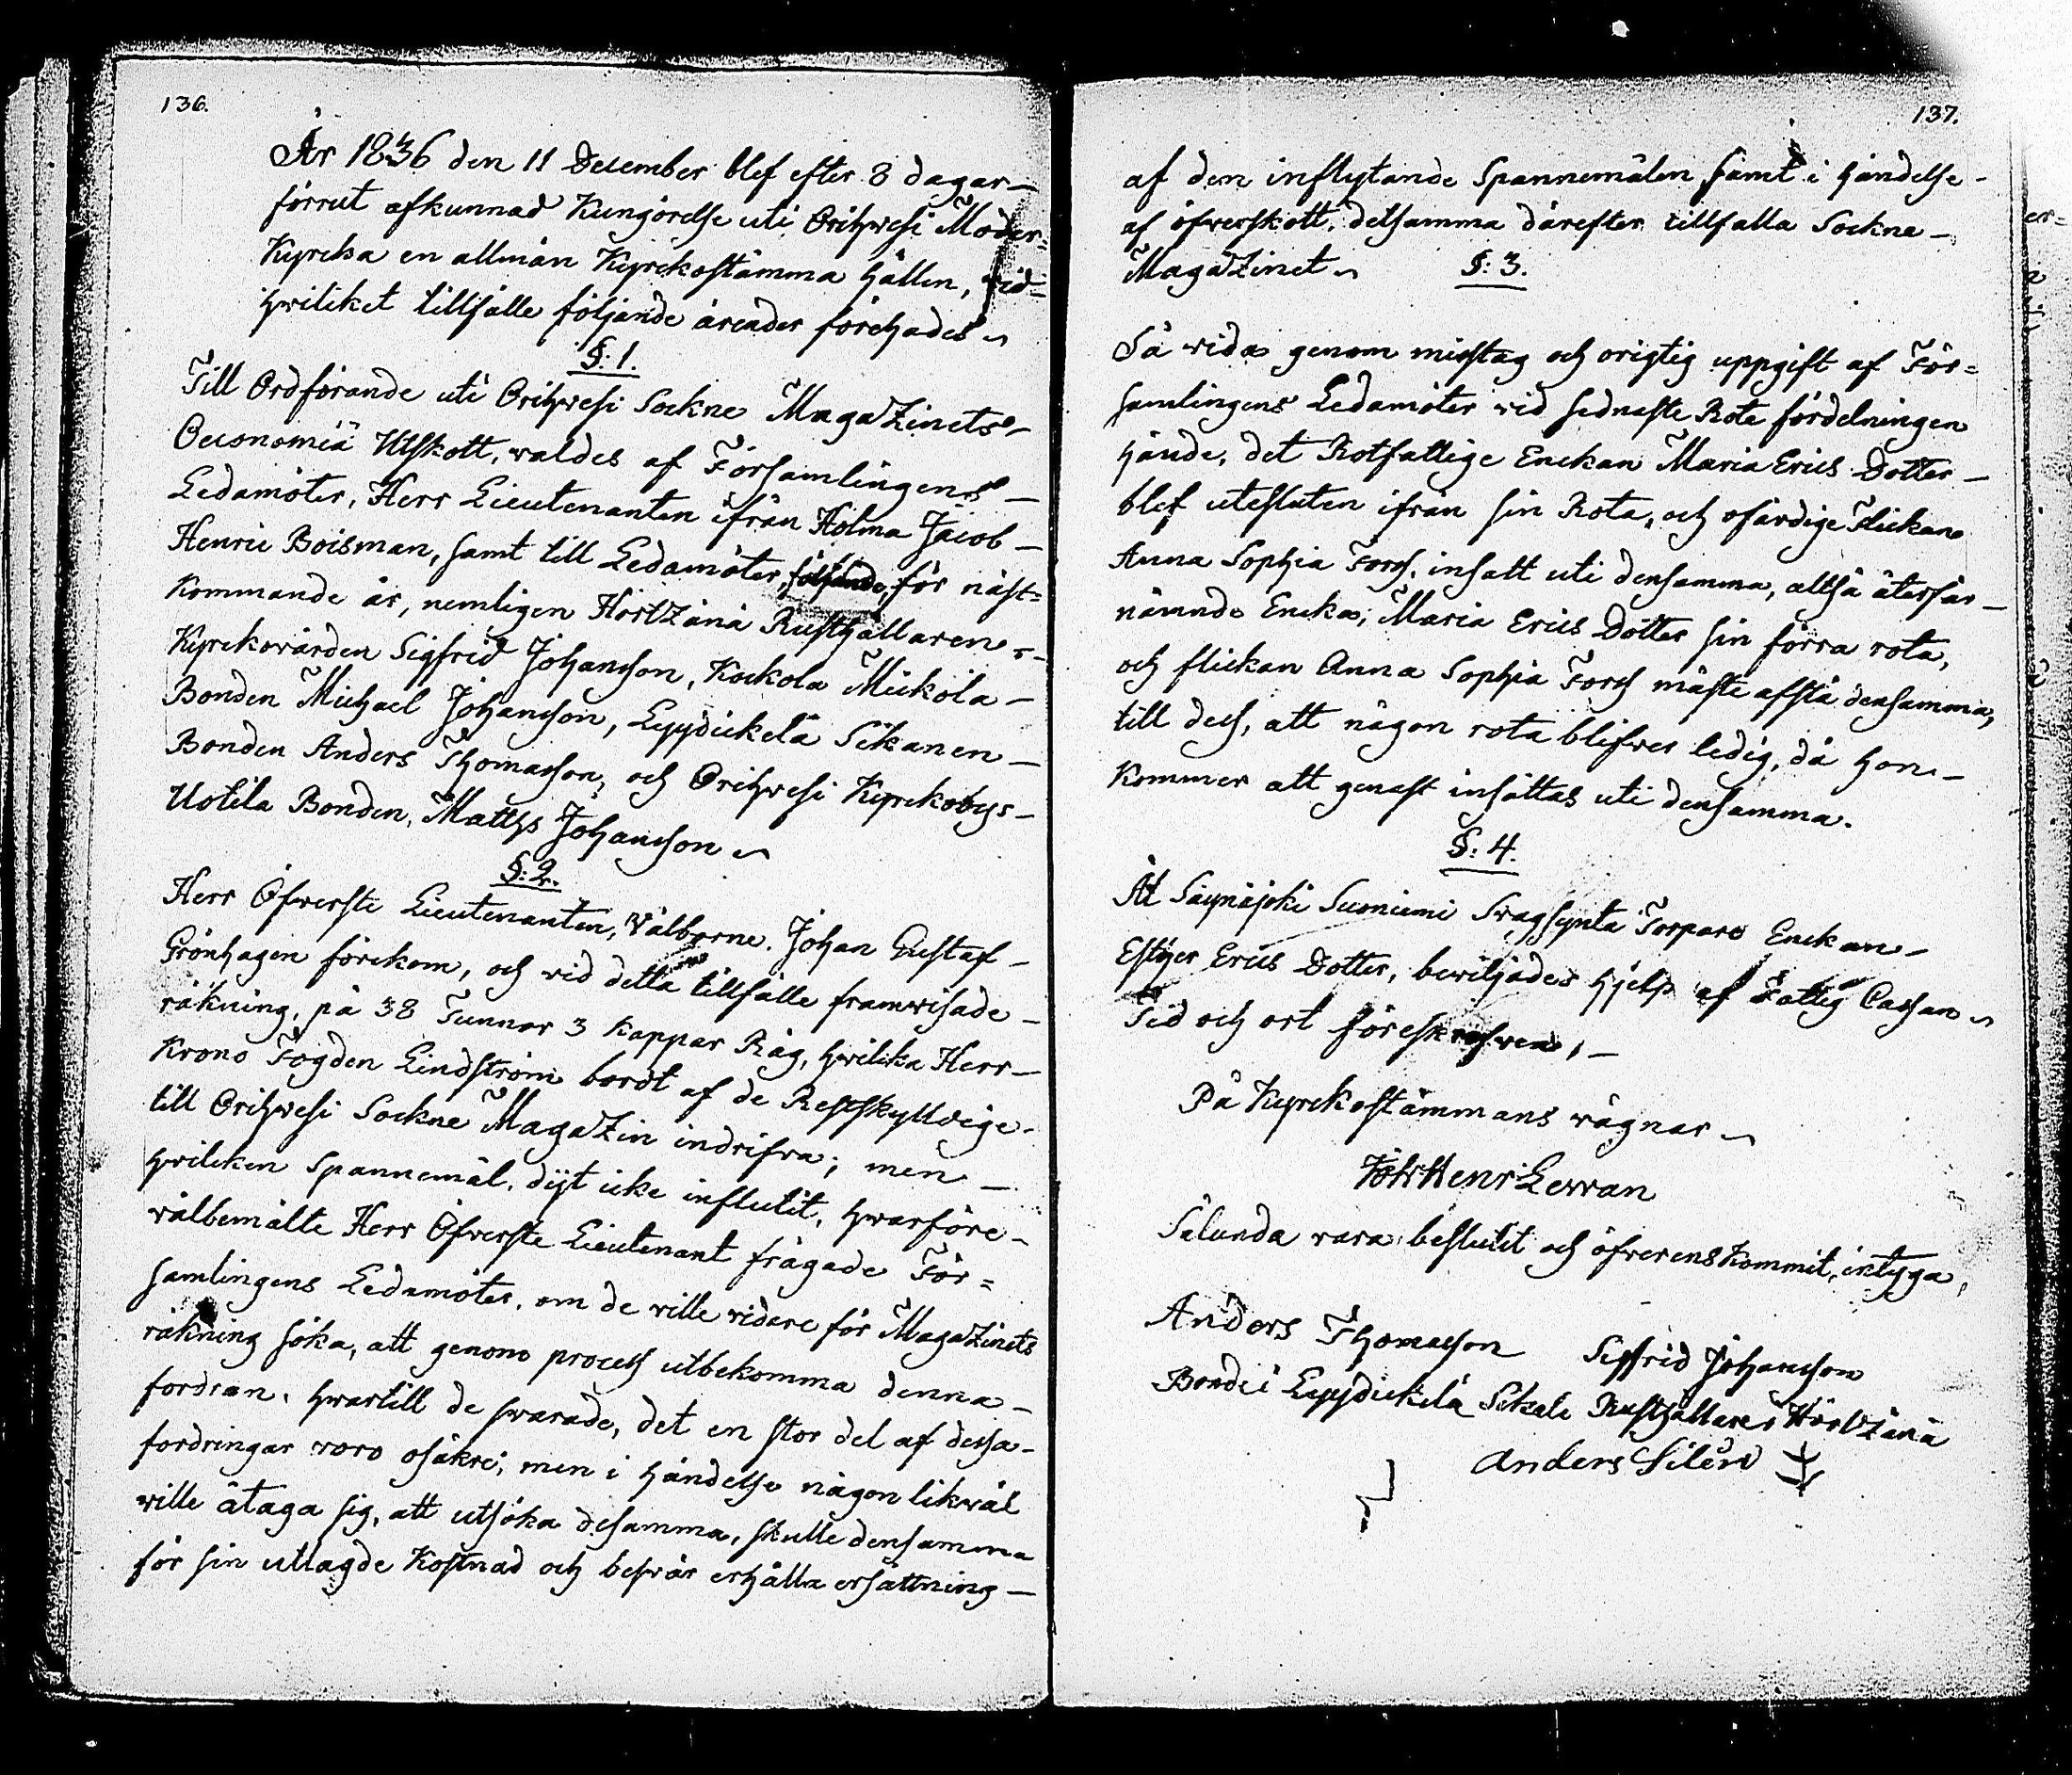 136.
År 1836 den 11 December blef efter 8 dagar
förrut afkunnad Kungörelse uti Orihvesi Moder=
Kyrcka en allmän Kyrckostämma hållen, vid
hvilcket tillfälle följande ärender förehades
§: 1.
Till Ordförande uti Orihvesi Sockne MagaZinets
Oeconomiä Utskott, valdes af Församlingens
Ledamöter, Herr Lieutenanten ifrån Holma Jacob
Henric Boisman, samt till Ledamöter, följande, för näst=
Kommande år, nemligen HörtZänä Rusthållaren
Kyrckovärden Sigfrid Johansson, Kockola Mickola
Bonden Michael Johansson, Leppdickelä Sikanen
Bonden Anders Thomasson, och Orihvesi Kyrckobys
Uotila Bonden, Matths Johansson
§: 2.
Herr Öfverste Lieutenanten, Välborne Johan Gustaf
Grönhagen förekom, och vid detta tillfälle framvisade
räkning, på 38 Tunnor 3 Kappar Råg, hvilcka Herr
Krono Fogden Lindström bordt af de Restskylldige
till Orihvesi Sockne MagaZin indrifva; men
hvilcken Spannemål, dijt icke influtit, hvarföre
välbemälte Herr Öfverste Lieutenant frågade För=
samlingens Ledamöter, om de ville vidare för MagaZinets
räkning söka, att genom process utbekomma denna
fordran, hvartill de svarade, det en stor del af dessa
fordringar voro osäkre; men i händelse någon likväl
ville åtaga sig, att utsöka desamma, skulle densamma
för sin utlagde Kostnad och besvär erhålla ersättning
137.
af den inflytande Spannemålen, samt i händelse
af öfverskott, detsamma därefter tillfalla Sockne
MagaZinet
§: 3.
Så vida genom misstag och origtig uppgift af För=
samlingens Ledamöter vid sednaste Rote fördelningen
hände, det Rotfattige Enckan Maria Erics Dotter
blef utesluten ifrån sin Rota, och ofärdige Flickan
Anna Sophia Forss, insatt uti densamma, alltså återfår
nämnde Encka, Maria Erics Dotter sin förra rota,
och flickan Anna Sophia Forss måste afstå densamma,
till dess, att någon rota blifver ledig, då hon
Kommer att genast insättas uti densamma.
§: 4.
Åt Säynäjoki Suoniemi Svagsynta Torpare Enckan
Esther Erics Dotter, beviljades hjelp af Fattig Cassan
Tid och ort föreskrefven,
På Kyrckostämmans vägnar
Joh: Henr: Levvan
Sålunda vara beslutit och öfverenskommit, intyga,
Anders Thomasson
Bonde i Leppdickelä Sikale
Sigfrid Johansson
Rusthållare i HörtZänä
Anders Silén